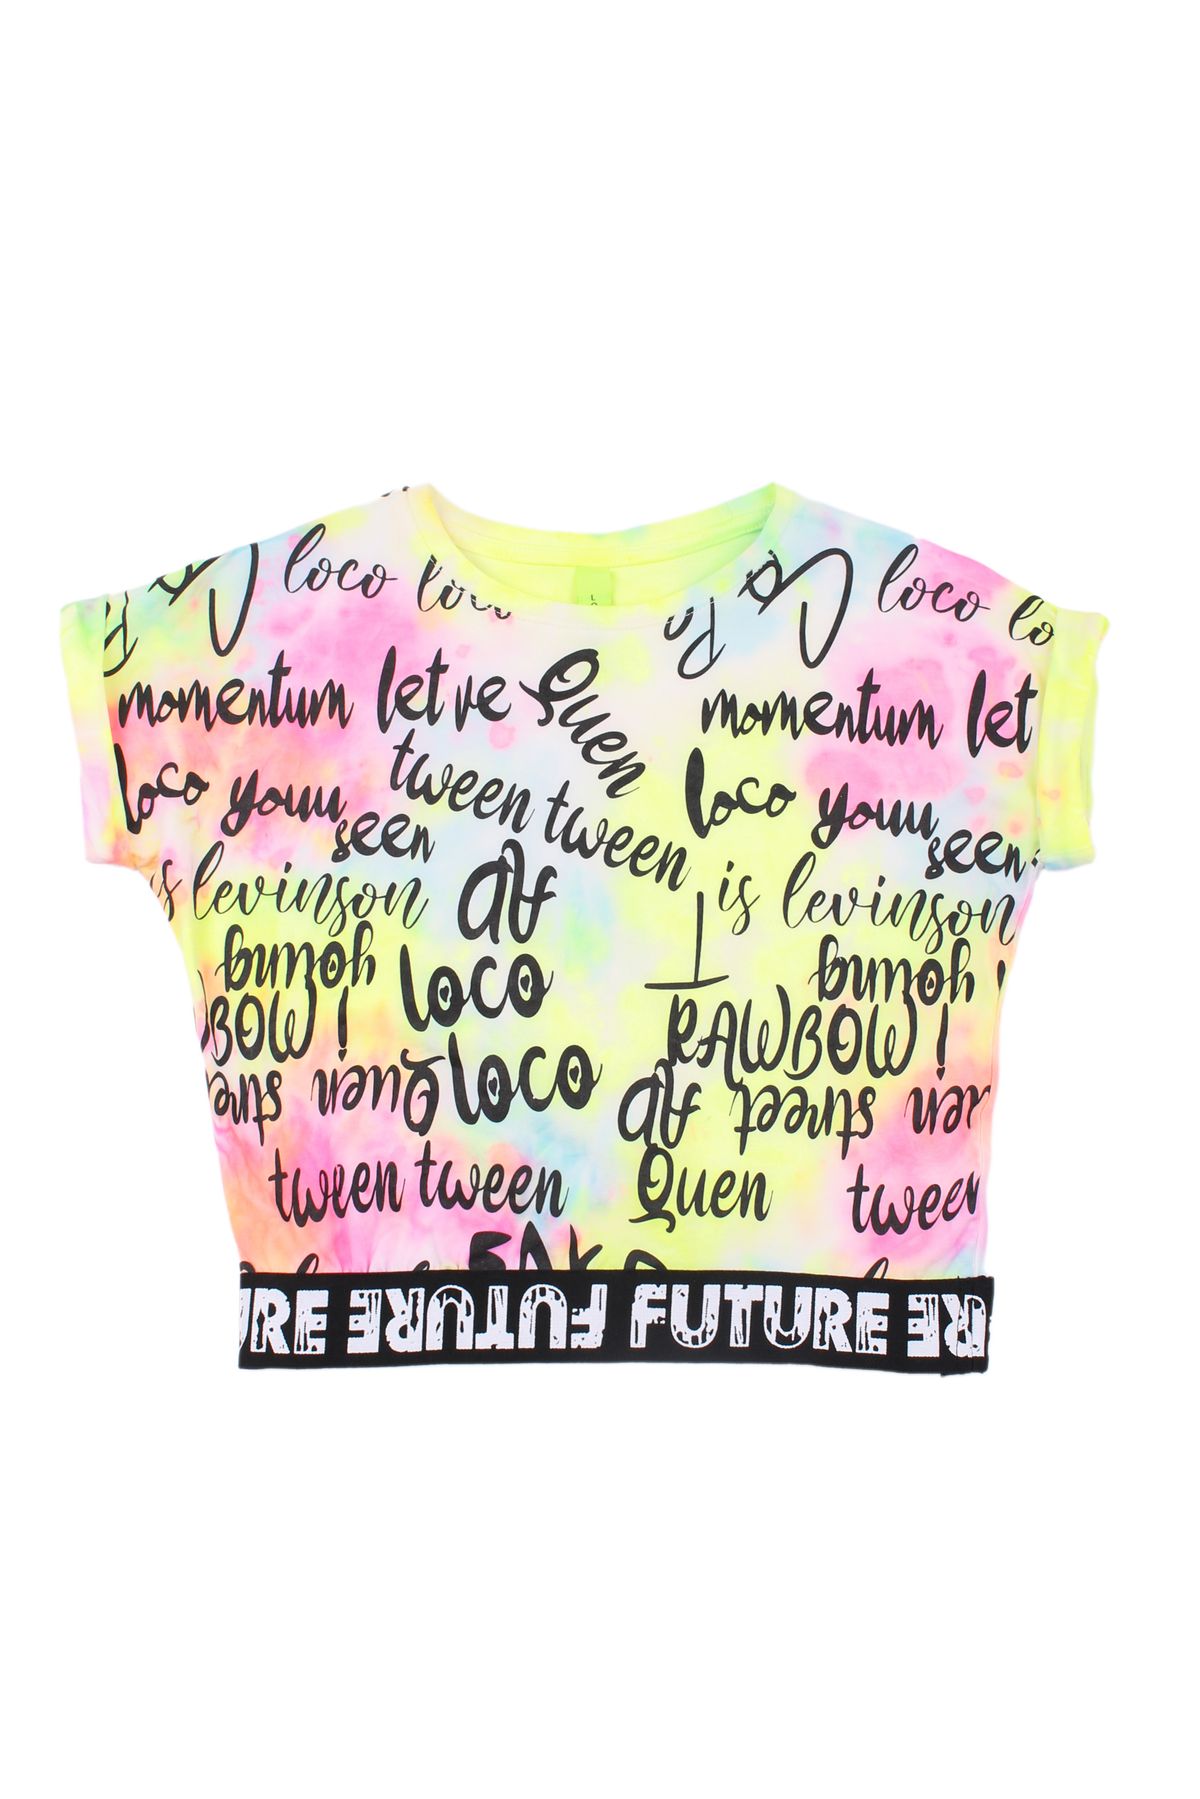 loco loco
loco lo
momentum let ve Quen
momentum let
tween tween
loco youu
loco youu
seen
seen
is levinson af
is levinson
youmg
loco
youmg
BOW !
RAWBOW !
Quen loco
af street
tween tween
Quen
tween
URE FUTURE FUTURE FUTURE RE